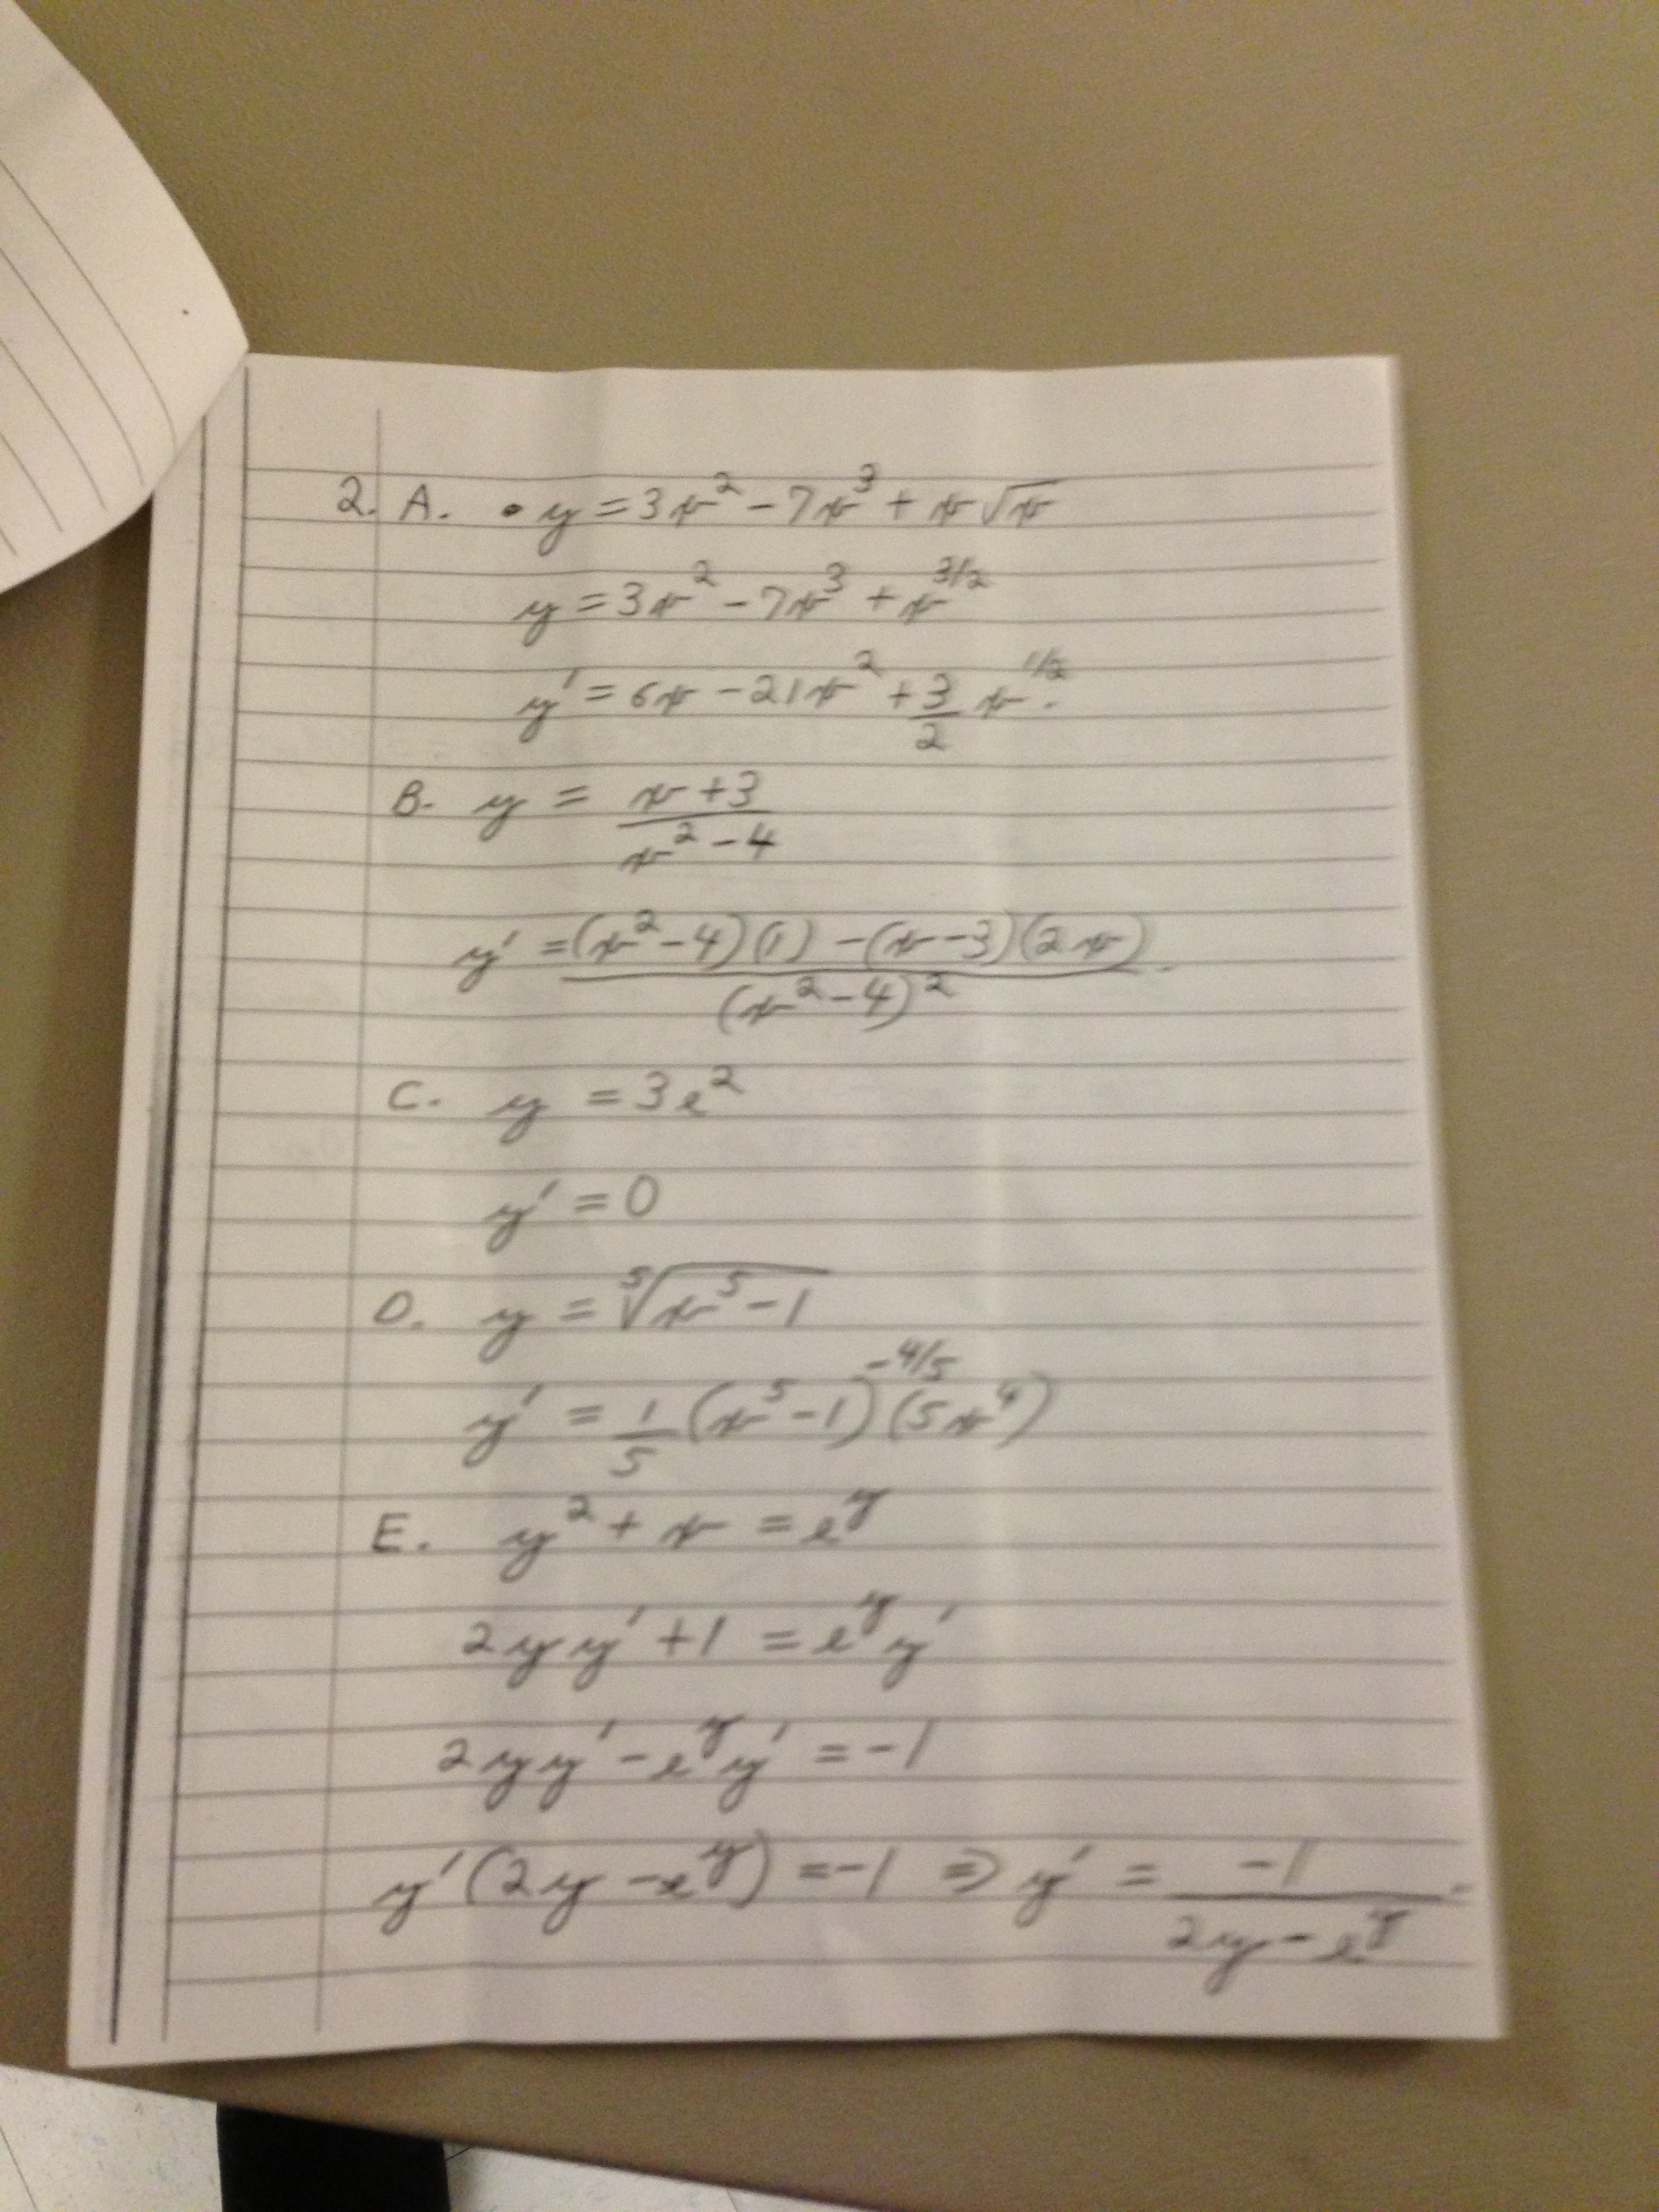 2. A. • y = 3x² - 7x³ + x√x
y = 3x² - 7x³ + x^3/2
y' = 6x - 21x² + 3/2 x^1/2.
B. y = (x+3)/(x²-4)
y' = ((x²-4)(1) - (x-3)(2x))/(x²-4)².
C. y = 3e²
y' = 0
D. y = ⁵√(x⁵-1)
y' = 1/5 (x⁵-1)^-4/5 (5x⁴)
E. y² + x = e^y
2yy' + 1 = e^y y'
2yy' - e^y y' = -1
y'(2y - e^y) = -1 ⇒ y' = -1/(2y - e^y).